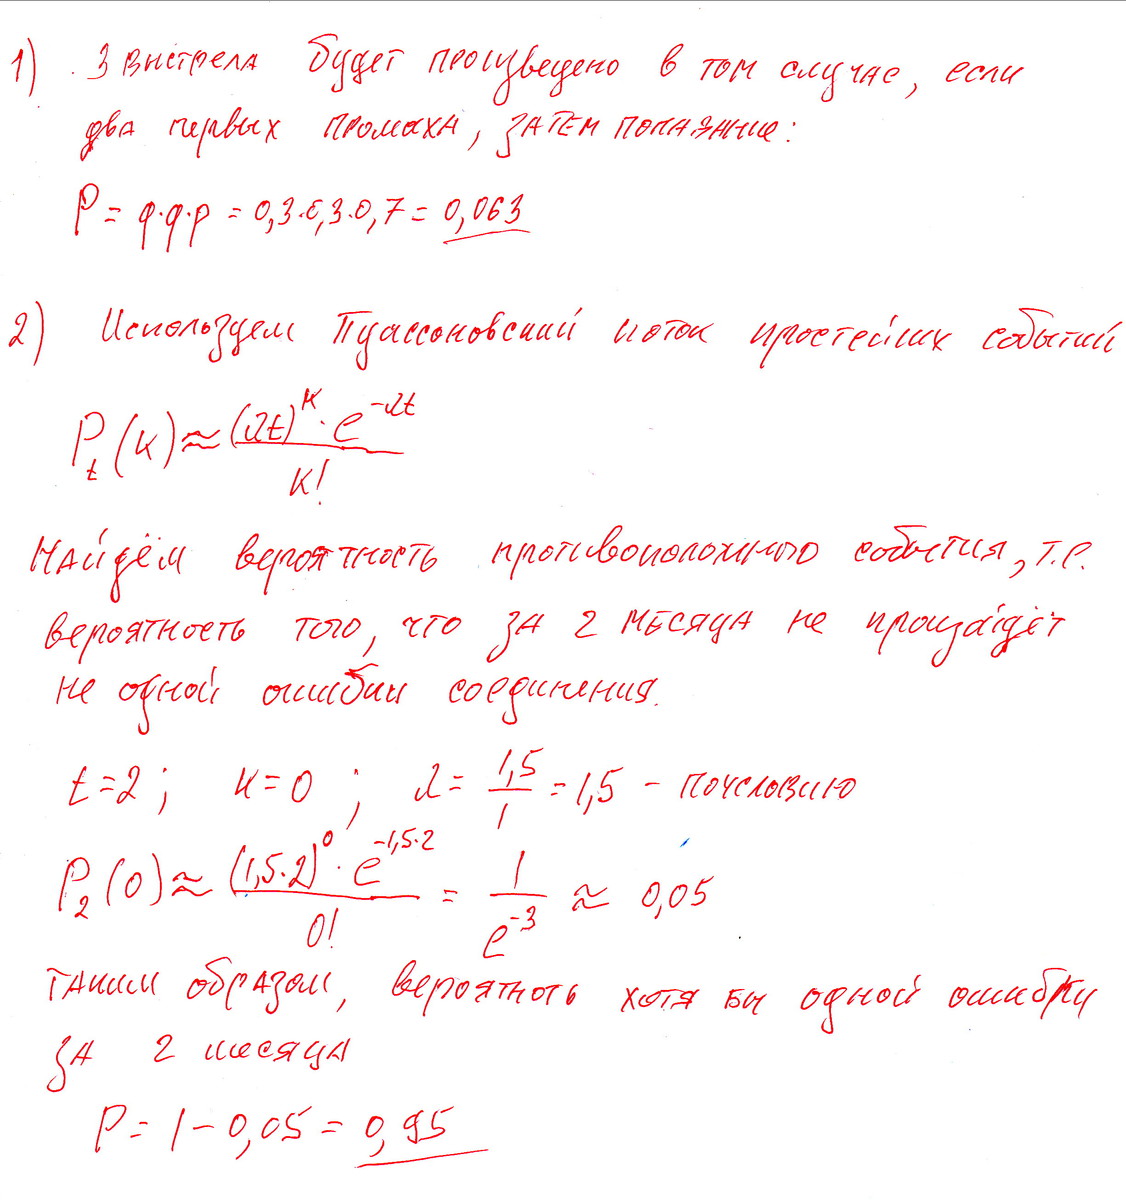 1) 3 выстрела будет произведено в том случае, если
два первых промаха, затем попадание:
P = q·q·p = 0,3·0,3·0,7 = 0,063
2) Используем Пуассоновский поток простейших событий
P_t(k) ≈ (λt)^k · e^(-λt) / k!
Найдём вероятность противоположного события, т.е.
вероятность того, что за 2 месяца не произойдёт
не одной ошибки соединения.
t=2; k=0; λ = 1,5/1 = 1,5 – по условию
P_2(0) ≈ (1,5·2)^0 · e^(-1,5·2) / 0! = 1/e^(-3) ≈ 0,05
Таким образом, вероятноть хотя бы одной ошибки
за 2 месяца
P = 1 – 0,05 = 0,95